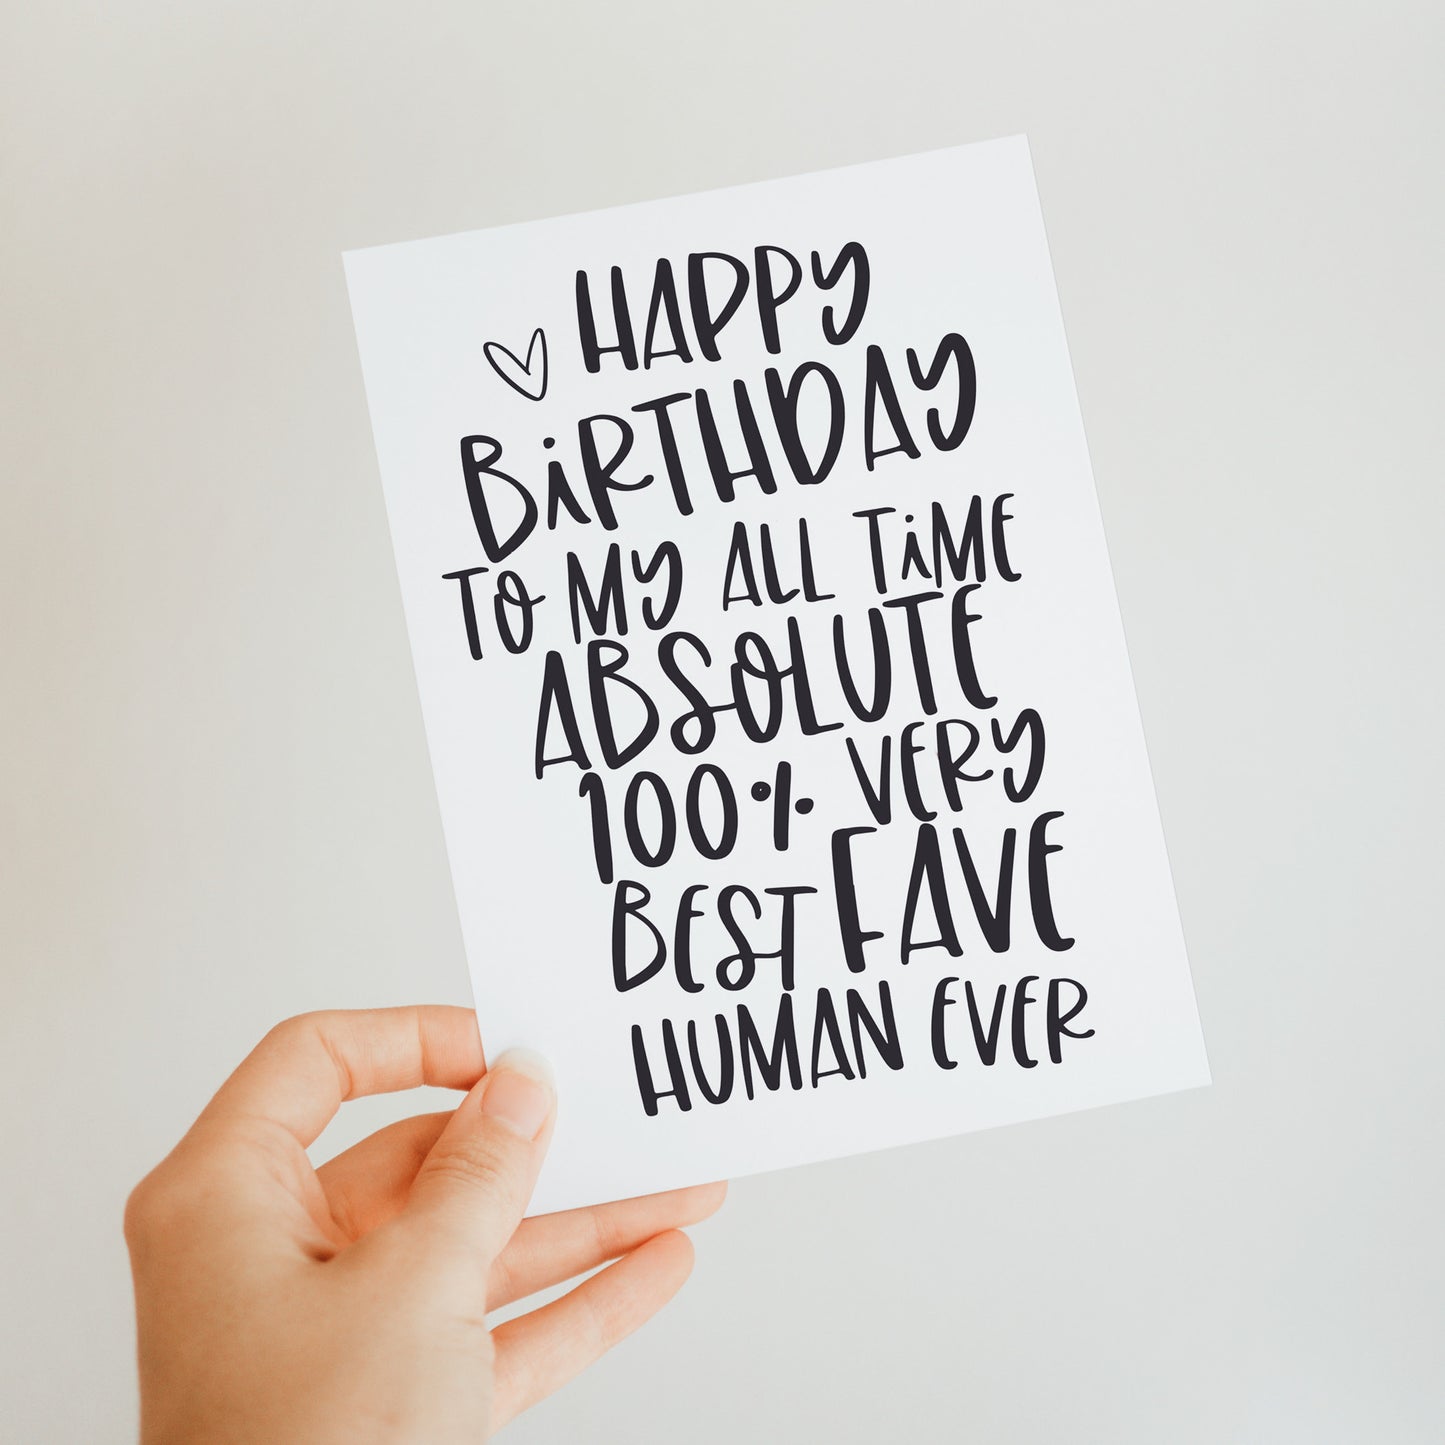 HAPPY
BiRTHDAY
TO MY ALL TiME
ABSOLUTE
100% VERY
BEST FAVE
HUMAN EVER